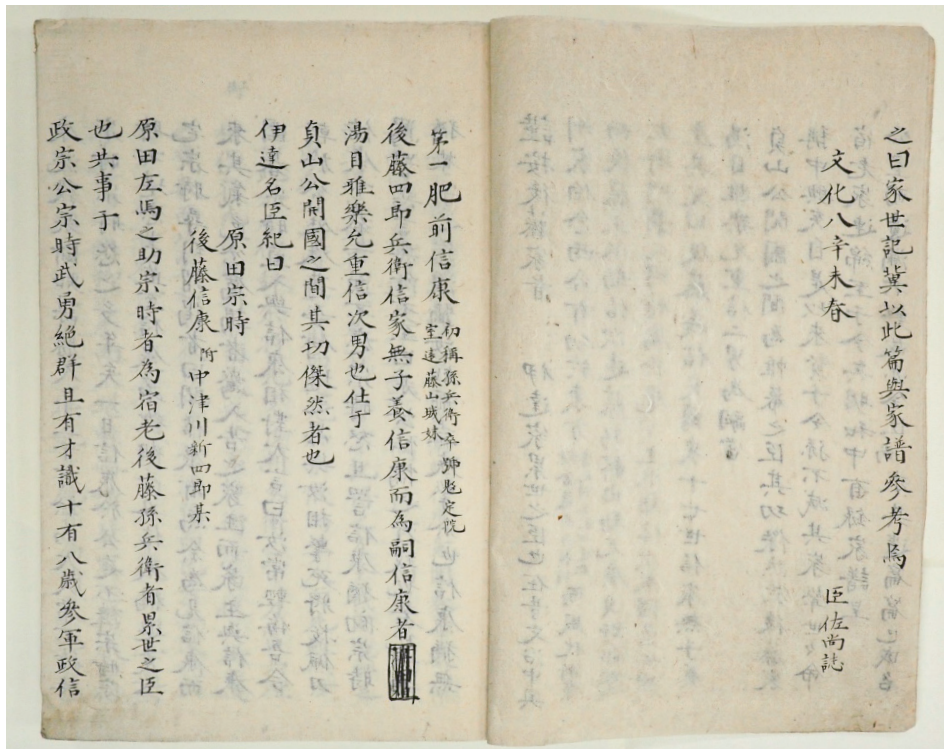 之曰家世記冀以此篇與家譜參考焉
文化八辛未春
臣佐尚誌
第一肥前信康
初稱孫兵衛卒號
室遠藤山城妹
後藤四郎兵衛信家無子養信康而為嗣信康者
湯目雅樂允重信次男也仕于
貞山公開國之間其功傑然者也
伊達名臣紀曰
原田宗時
後藤信康附中津川新四郎某
原田左馬之助宗時者為宿老後藤孫兵衛者累世之臣
也共事于
政宗公宗時武勇絶群且有才識十有八歳參軍政信